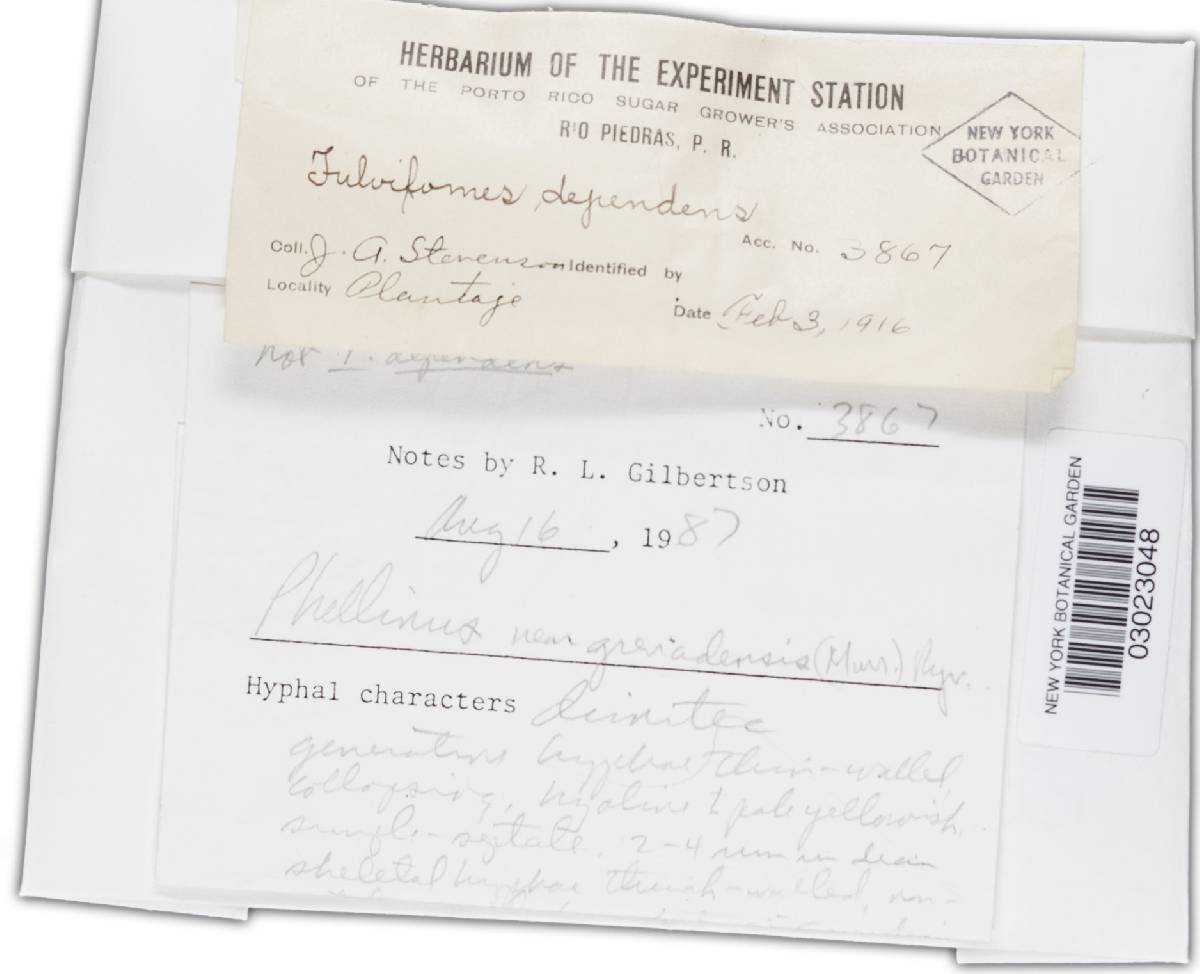 HERBARIUM OF THE EXPERIMENT STATION
OF THE PORTO RICO SUGAR GROWER'S ASSOCIATION
RIO PIEDRAS, P. R.
NEW YORK
BOTANICAL
GARDEN
Fulvifomes dependens
Acc. No. 3867
Coll. J. A. Stevenson Identified by
Locality Plantaje
Date Feb 3, 1916
not P. dependens
No. 3867
Notes by R. L. Gilbertson
Aug 16, 1987
Phellinus near grenadensis (Murr.) Ryv.
Hyphal characters dimitic
generative hyphae thin-walled,
collapsing, hyaline to pale yellowish,
simple-septate, 2-4 µm in diam
skeletal hyphae thick-walled, non-
NEW YORK BOTANICAL GARDEN
03023048